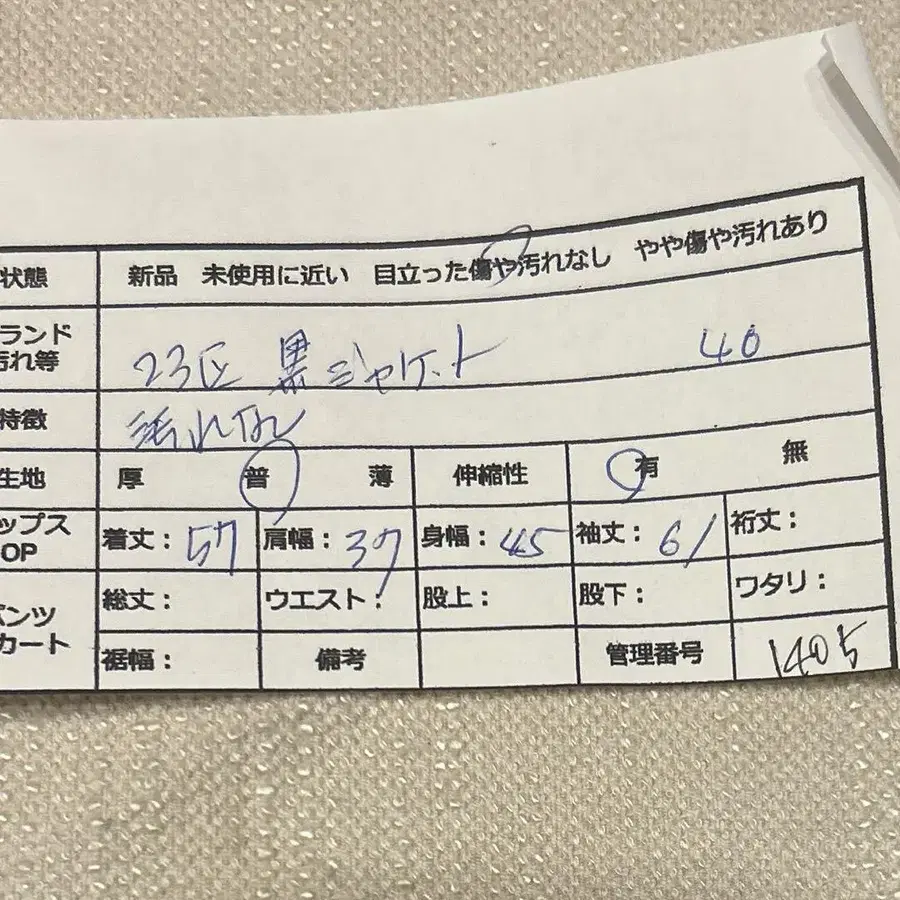 状態 新品 未使用に近い 目立った傷や汚れなし やや傷や汚れあり
ランド
汚れ等 23区 黒ジャケット 40
特徴 汚れなし
生地 厚 普 薄 伸縮性 有 無
ップス
OP 着丈: 57 肩幅: 37 身幅: 45 袖丈: 61 裄丈:
パンツ
カート 総丈: ウエスト: 股上: 股下: ワタリ:
裾幅: 備考 管理番号 1405